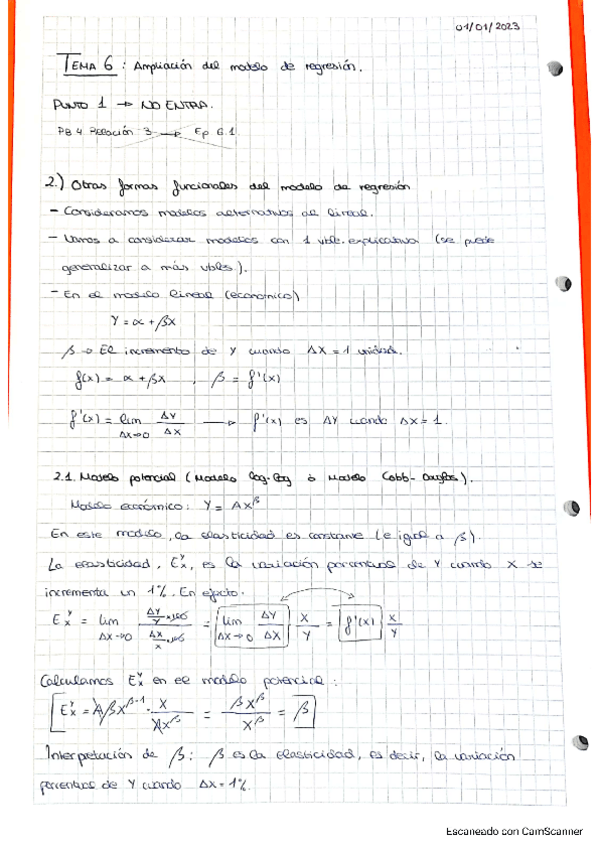 01/01/2023
TEMA 6 : Ampliación del modelo de regresión.
PUNTO 1 → NO ENTRA.
PB 4 Relación 3 → Ep 6.1
2.) Otras formas funcionales del modelo de regresión
- Consideramos modelos alternativos al lineal.
- Vamos a considerar modelos con 1 vble. explicativa (se puede
generalizar a más vbles).
- En el modelo lineal (económico)
Y = α + βX
β → El incremento de Y cuando ΔX = 1 unidad.
f(x) = α + βX , β = f'(x)
f'(x) = lim ΔX→0 ΔY/ΔX → f'(x) es ΔY cuando ΔX = 1.
2.1. Modelo potencial (Modelo log-log ó Modelo Cobb-Douglas).
Modelo económico: Y = AX^β
En este modelo, la elasticidad es constante (e igual a β).
La elasticidad, E^Y_X, es la variación porcentual de Y cuando X se
incrementa un 1%. En efecto.
E^Y_X = lim ΔX→0 (ΔY/Y ×100)/(ΔX/X ×100) = lim ΔX→0 ΔY/ΔX · X/Y = f'(x) X/Y
Calculamos E^Y_X en el modelo potencial:
E^Y_X = AβX^β-1 · X/AX^β = βX^β/X^β = β
Interpretación de β: β es la elasticidad, es decir, la variación
porcentual de Y cuando ΔX = 1%.
Escaneado con CamScanner